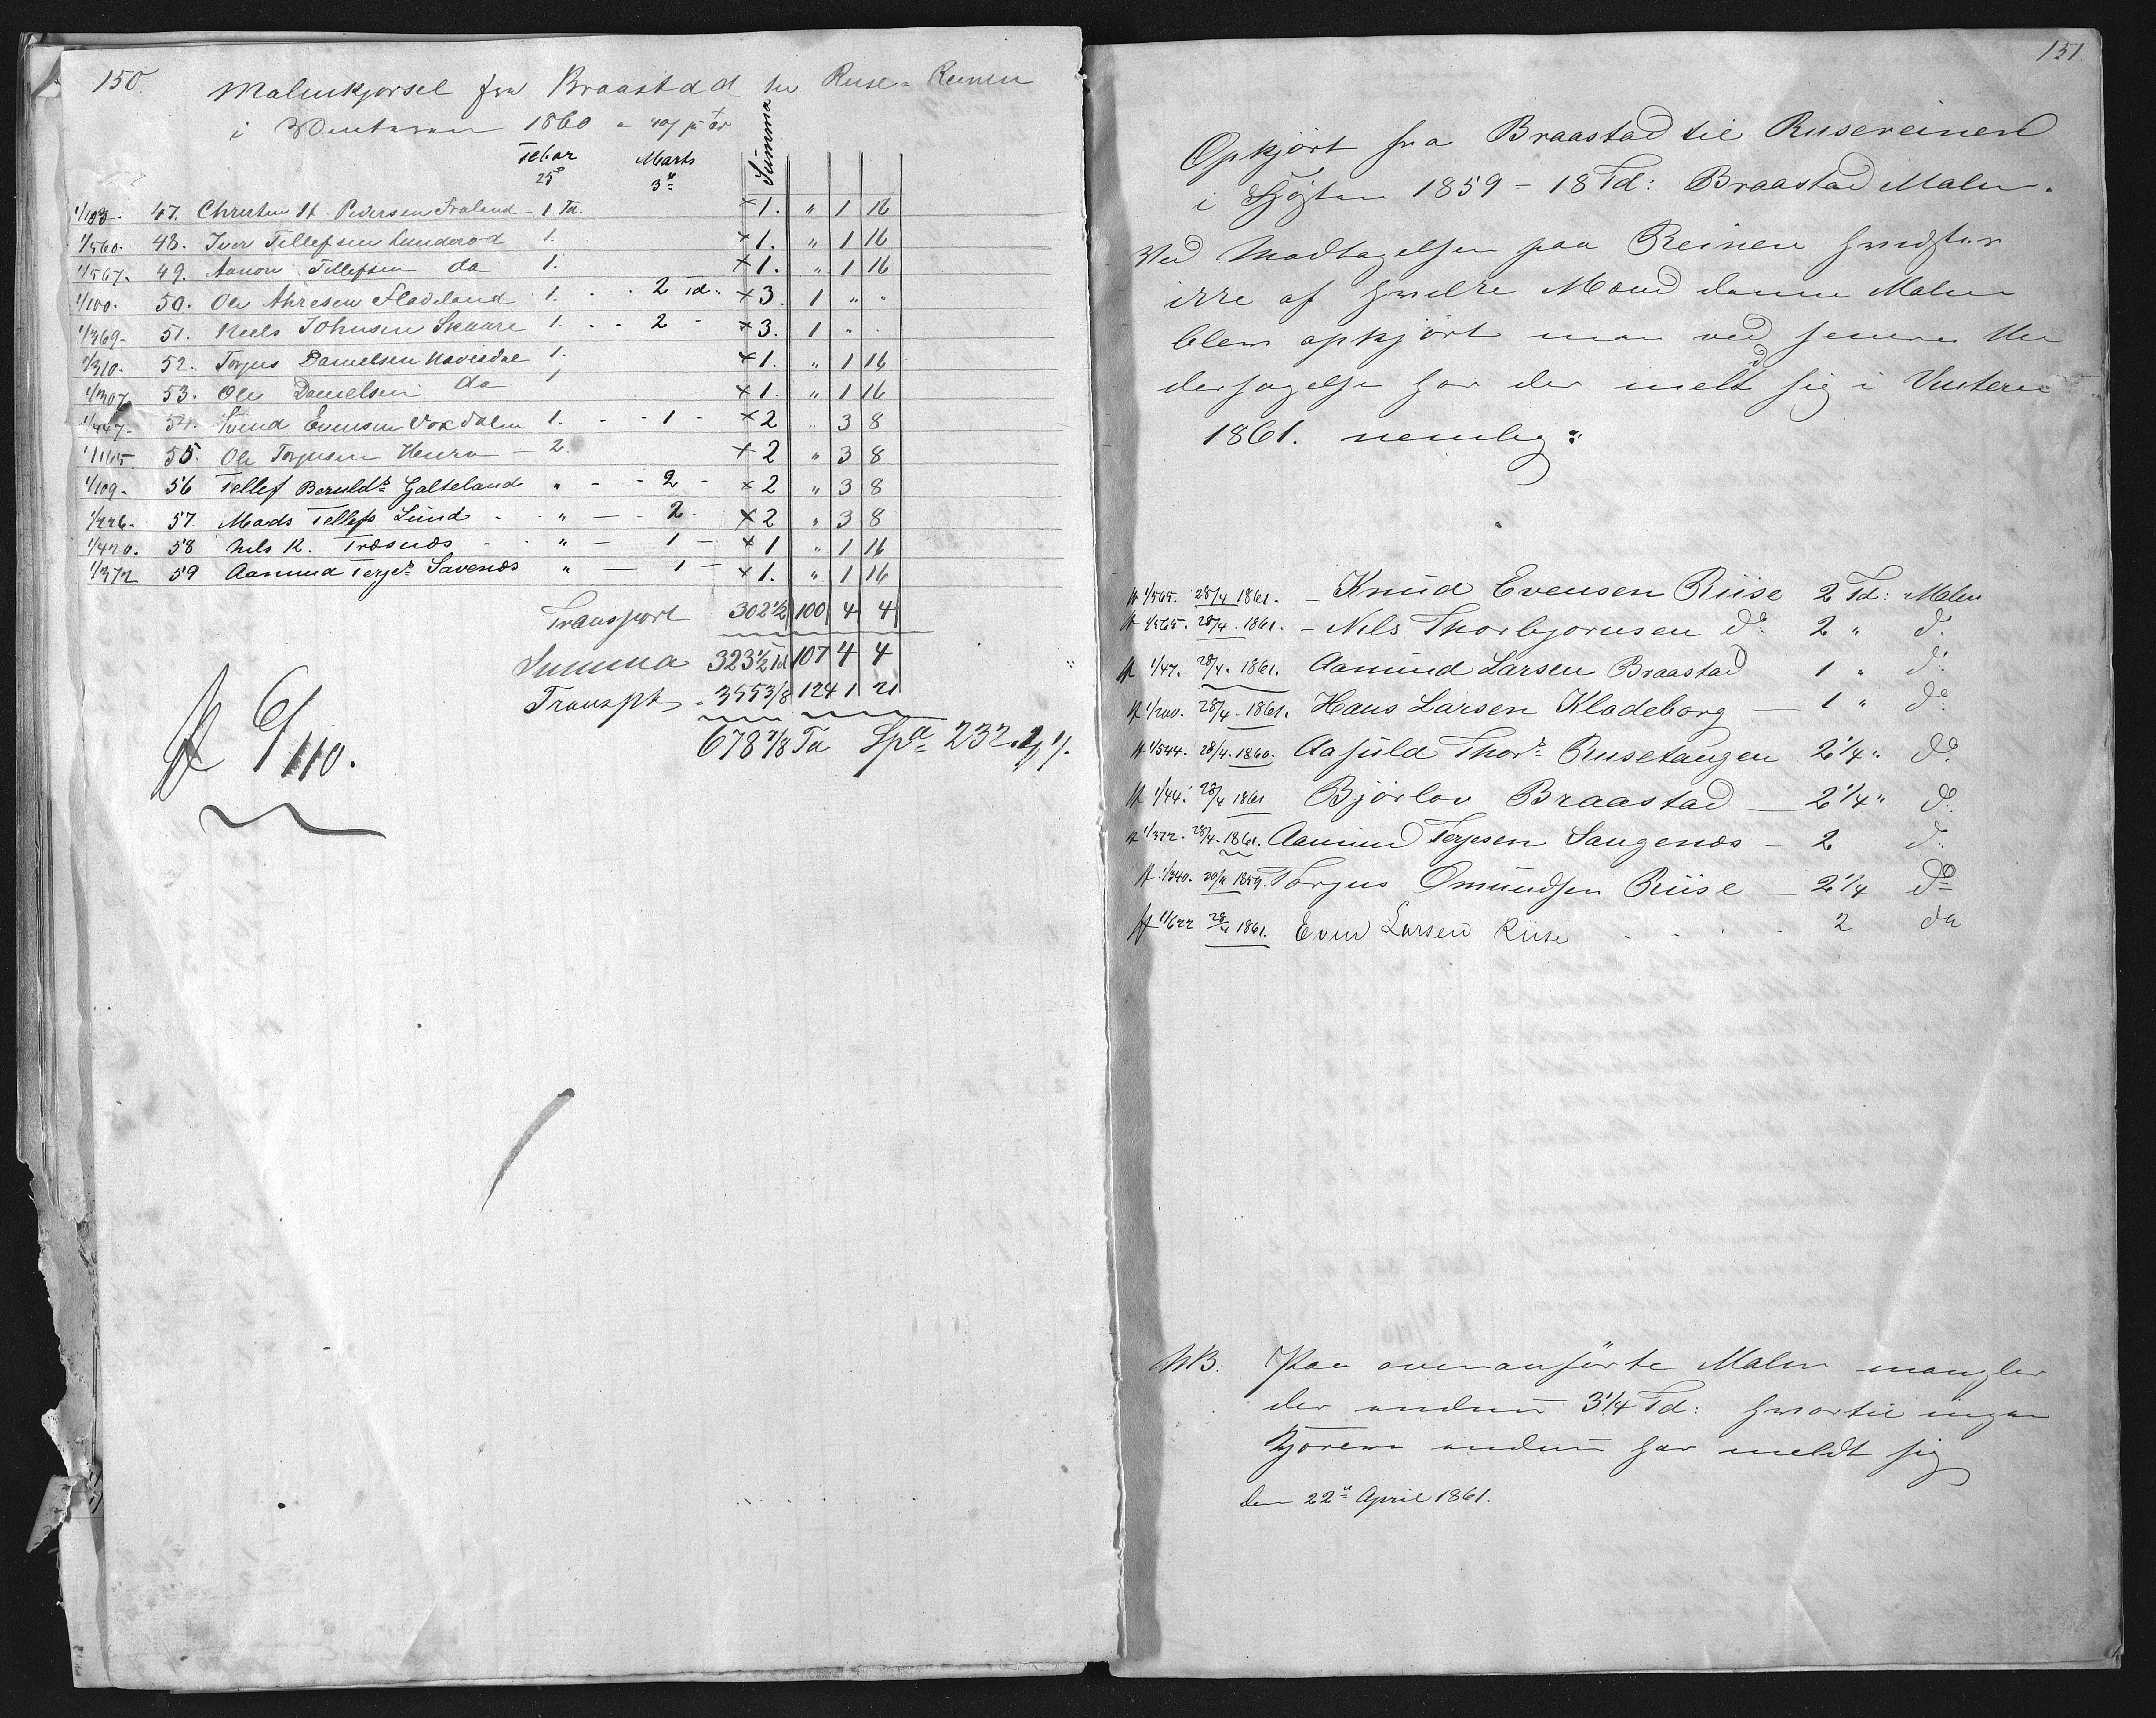 150.
Malmkjørsel fra Braastad til Ruse-Reinen
i Winteren 1860 a 40 s pr Tr
Febar Marts Summa
25de 3de
1/103. 47. Christen H. Pedersen Froland - 1 Td. x 1. " 1 16
1/560. 48. Iver Tellefsen Lunderød 1. x 1. " 1 16
1/567. 49. Aanon Tellefsen do 1. x 1. " 1 16
1/100. 50. Ole Ahresen Fladeland 1. - - 2 Td. x 3. 1 " "
1/369. 51. Neels Johnsen Skaare 1. - - 2 - x 3. 1 " .
1/310. 52. Torjus Danielsen Navisdal 1. x 1. " 1 16
1/307. 53. Ole Danielsen do 1 x 1. " 1 16
1/447. 54. Svend Evensen Voxdalen 1. - - 1 - x 2 " 3 8
1/165. 55. Ole Torjusen Heura - 2. x 2 " 3 8
1/109. 56 Tellef Berulds. Galteland " - - 2 - x 2 " 3 8
1/226. 57. Mads Tellefs Lund - " - - 2. x 2 " 3 8
1/420. 58 Nels K. Træsnæs - - " - 1 - x 1 " 1 16
1/372 59 Aamund Terjes. Savenæs " - 1 - x 1. " 1 16
Transport 302 1/2 100 4 4
Summa 323 1/2 Td 107 4 4
Transpt. 355 3/8 124 1 21
678 7/8 Td Spd 232. 1 1.
ff 6/110.
151.
Opkjørt fra Braastad til Rusereinen
i Høsten 1859 - 18 Td: Braastad Malm.
Ved Modtagelsen paa Reinen
ikke af hvilke Mænd denne Malm
blev opkjørt men ved senere Un
dersøgelse har der meldt sig i Vinteren
1861. nemlig:
ff 1/565. 28/4 1861. - Knud Evensen Riise 2 Td: Malm
ff 1/565. 28/4. 1861. - Nils Thorbjørnsen do 2 " do
ff 1/47. 28/4. 1861. Aamund Larsen Braastad 1 " do
ff 1/200. 28/4. 1861. Hans Larsen Kladeborg - 1 " do
ff 1/544. 28/4. 1860. Aasuld Thors. Rusetangen 2 1/4 " do
ff 1/44. 28/4 1861 Bjørlov Braastad - 2 1/4 " do
ff 1/372. 28/4. 1861. Aamund Terjesen Saugenæs - 2 do
ff 1/340. 30/11 1859. Torjus Omundsen Riise - 2 1/4 do
ff 1/622 28/4 1861. Even Larsen Riise . . . . 2 do
NB: Paa ovenanførte Malm mangler
der endnu 3 1/4 Td: hvortil ingen
Kjørere endnu har meldt sig
den 22de April 1861.